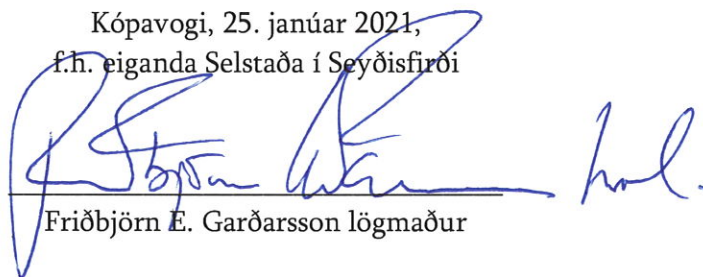 Kópavogi, 25. janúar 2021,
f.h. eiganda Selstaða í Seyðisfirði
Friðbjörn E. Garðarsson lögmaður